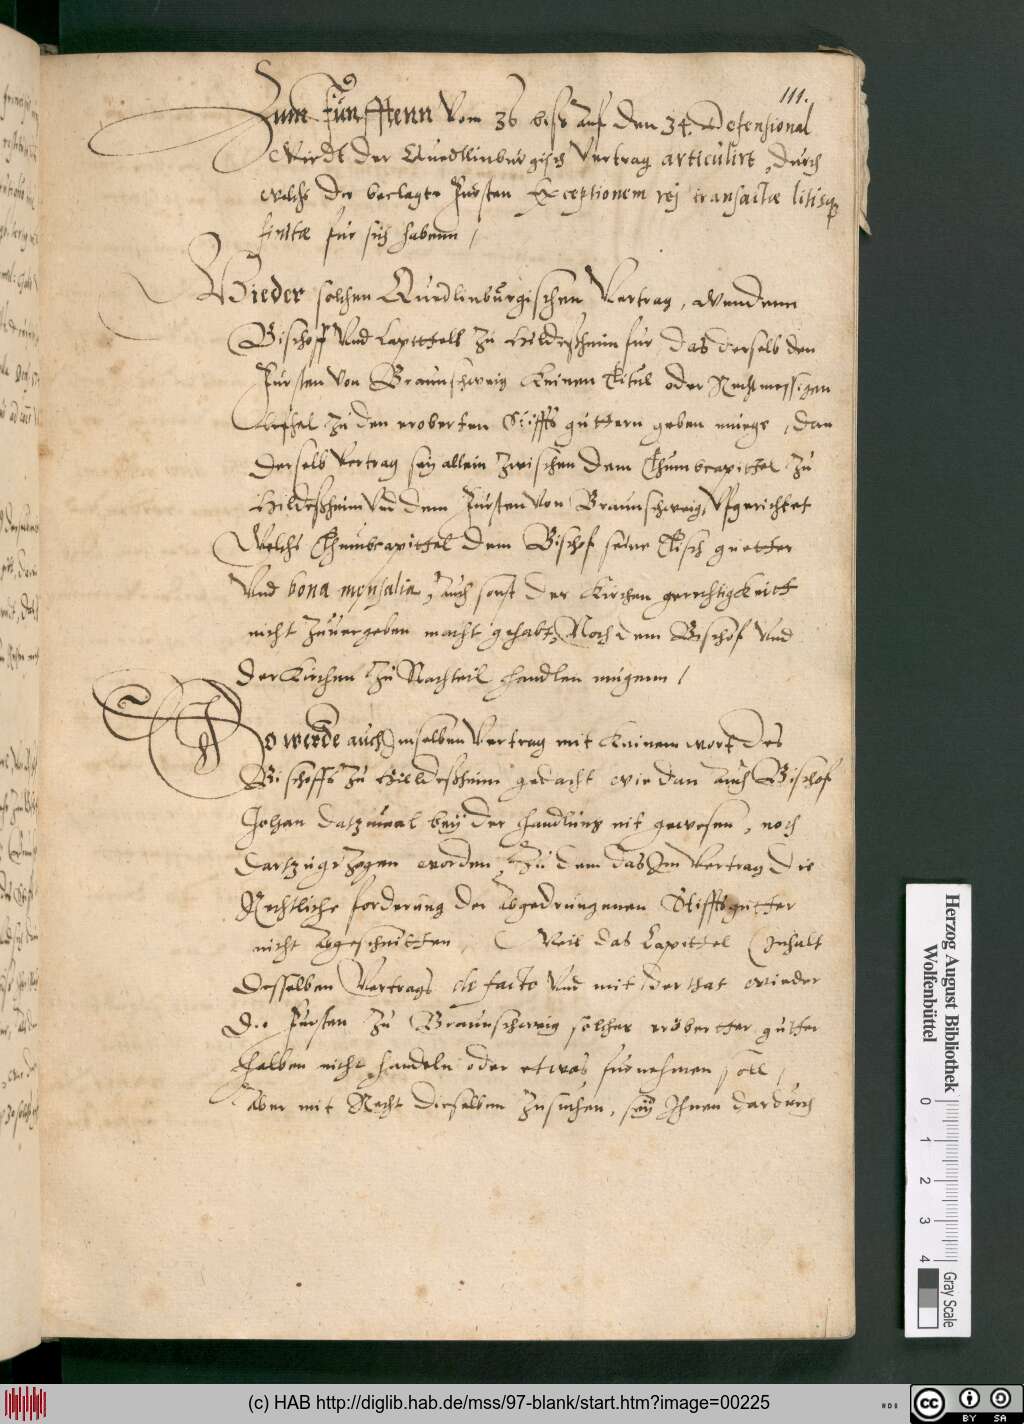 111.
Zum Fünfftenn Vom 36 biss auf den 34. Defensional
Wirdt der Quedlinburgisch Vertrag articulirt, durch
welchs die beclagte Fursten Exceptionem rej transactæ litisq
finitæ fur sich habenn /
Wieder solchen Quedlinburgischen Vertrag, wendenn
Bischoff Vnd Capittell zu Hildeßheim fur, das derselb den
Fursten von Braunschweig keinen Titul oder Rechtmessigen
zu den eroberten Stiffts guttern geben muege, dan
derselb Vertrag sey allein zwischen dem Thumbcapittel zu
Hildeßheim Vnd dem Fursten von Braunschweig, Vfgerichtet
Welchs Thumbcapittel dem Bischof seine Tisch guetter
Vnd bona mensalia, auch sonst der Kirchen gerechtigkeitt
nicht zuuergeben macht gehabt, Noch dem Bischof Vnd
der Kirchen zu Nachteil handlen mugenn /
So werde auch Inselben Vertrag mit keinem wort des
Bischoffs zu Hilldeßheim gedacht wie dan auch Bischof
Johan datzumal bey der handlung nit gewesen, noch
dartzu gezogen worden, Zu dem das Im Vertrag die
Rechtliche forderung der abgedrungenen Stifftsgutter
nicht abgeschnitten, Weil das Capittel Inhalt
desselben Vertrags de facto Vnd mit der that wieder
die Fursten zu Braunschweig solcher eroberter gutter
halben nicht handeln oder etwas furnehmen soll,
aber mit Recht dieselben zusuchen, sey Ihnen dardurch
Herzog August Bibliothek
Wolfenbüttel
0 1 2 3 4
Gray Scale
(c) HAB http://diglib.hab.de/mss/97-blank/start.htm?image=00225
cc BY SA